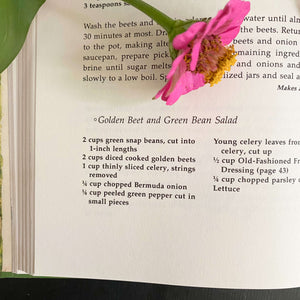 3 teaspoons
Wash the beets and water until almo
30 minutes at most. Dra the beets. Return
to the pot, making remaining ingre
saucepan, prepare pick the
brine until sugar melts
slowly to a low boil. jars and seal a
Makes
Golden Beet and Green Bean Salad
2 cups green snap beans, cut into
1-inch lengths
2 cups diced cooked golden beets
1 cup thinly sliced celery, strings
removed
¼ cup chopped Bermuda onion
¼ cup peeled green pepper cut in
small pieces
Young celery leaves from
celery, cut up
½ cup Old-Fashioned Fr
Dressing (page 43)
¼ cup chopped parsley
Lettuce